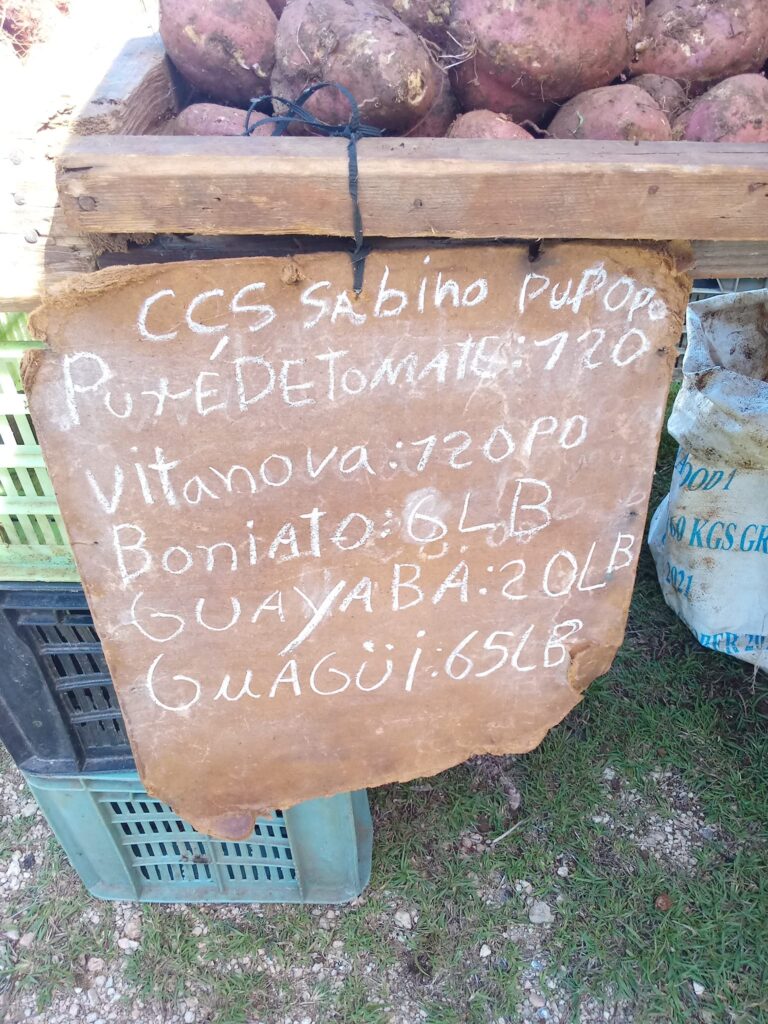 CCS SAbino PUPOPO
PuréDETOMATE:120
Vitanova:120PO
BoniAto:6LB
GUAYABA:20LB
GuAGüi:65LB
60 KGS GR
2021